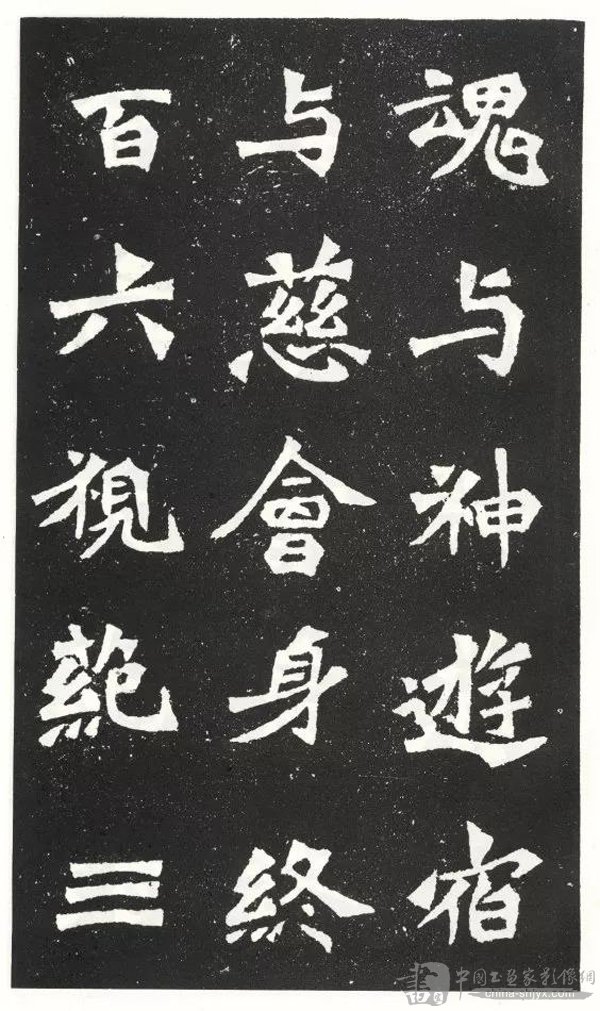 魂与神遊宿
与慈會身終
百六視三
書
中国书画家影像網
china-shjyx.com